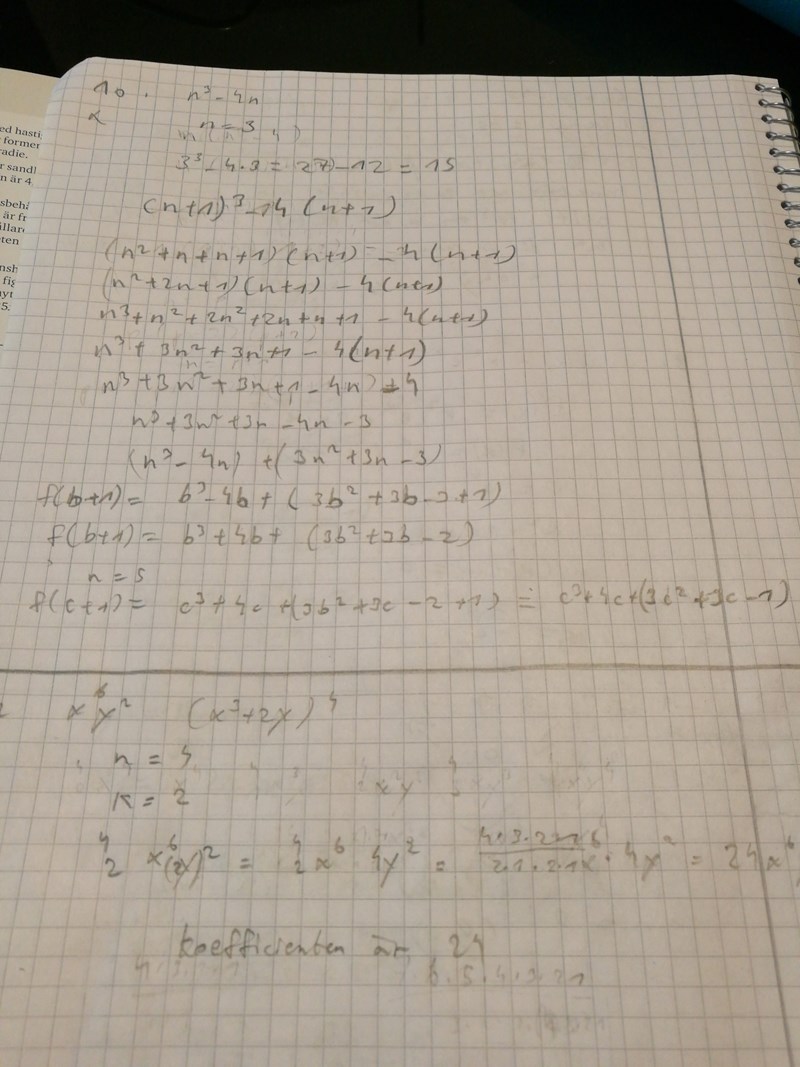 ed hasti
former
radie.
r sandl
n är 4
sbehå
är fr
illare
ten
nsh
fig
nyt
5.
10.
n³ - 4n
n = 3
3³ - 4·3 = 27 - 12 = 15
(n+1)³ - 4 (n+1)
(n² + n + n + 1) (n+1) - 4 (n+1)
(n² + 2n + 1) (n+1) - 4(n+1)
n³ + n² + 2n² + 2n + n + 1 - 4(n+1)
n³ + 3n² + 3n + 1 - 4(n+1)
n³ + 3n² + 3n + 1 - 4n - 4
n³ + 3n² + 3n - 4n - 3
(n³ - 4n) + (3n² + 3n - 3)
f(b+1) = b³ - 4b + (3b² + 3b - 3 + 1)
f(b+1) = b³ + 4b + (3b² + 3b - 2)
n = 5
f(c+1) = c³ + 4c + (3b² + 3c - 2 + 1) = c³ + 4c + (3c² + 3c - 1)
x⁶y² (x³+2y)⁴
n = 4
k = 2
4
2 x⁶(2y)² = 4
2 x⁶ 4y² = 4·3·2·1 x⁶ / 2·1·2·1 · 4y² = 24x⁶
koefficienten är 24
6·5·4·3·2·1